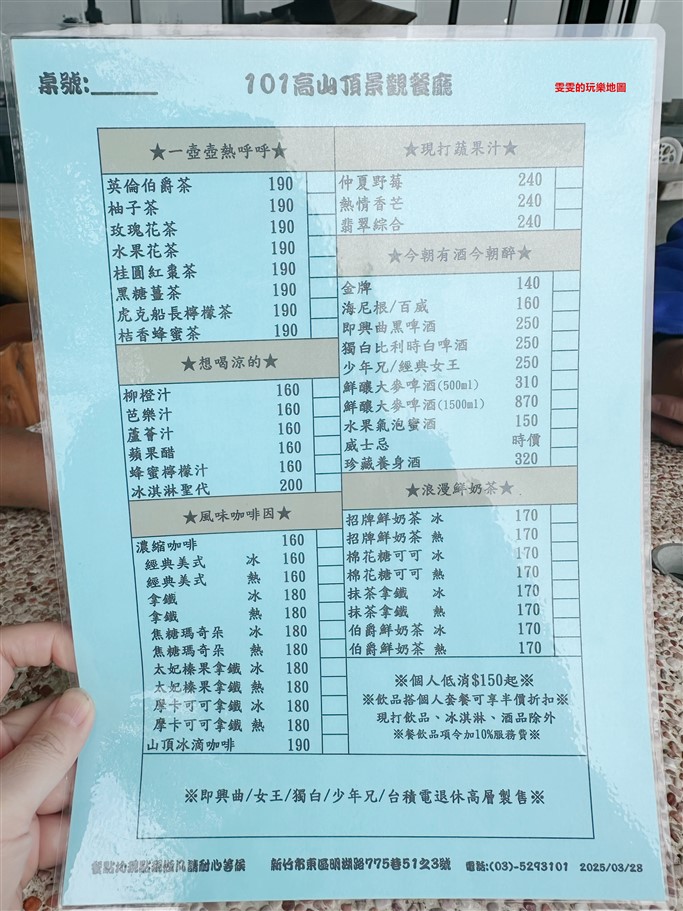 桌號:______ 101高山頂景觀餐廳
雯雯的玩樂地圖
★一壺壺熱呼呼★
英倫伯爵茶 190
柚子茶 190
玫瑰花茶 190
水果花茶 190
桂圓紅棗茶 190
黑糖薑茶 190
虎克船長檸檬茶 190
桔香蜂蜜茶 190
★想喝涼的★
柳橙汁 160
芭樂汁 160
蘆薈汁 160
蘋果醋 160
蜂蜜檸檬汁 160
冰淇淋聖代 200
★風味咖啡因★
濃縮咖啡 160
經典美式 冰 160
經典美式 熱 160
拿鐵 冰 180
拿鐵 熱 180
焦糖瑪奇朵 冰 180
焦糖瑪奇朵 熱 180
太妃榛果拿鐵 冰 180
太妃榛果拿鐵 熱 180
摩卡可可拿鐵 冰 180
摩卡可可拿鐵 熱 180
山頂冰滴咖啡 190
★現打蔬果汁★
仲夏野莓 240
熱情香芒 240
翡翠綜合 240
★今朝有酒今朝醉★
金牌 140
海尼根/百威 160
即興曲黑啤酒 250
獨白比利時白啤酒 250
少年兄/經典女王 250
鮮釀大麥啤酒(500ml) 310
鮮釀大麥啤酒(1500ml) 870
水果氣泡蜜酒 150
威士忌 時價
珍藏養身酒 320
★浪漫鮮奶茶★
招牌鮮奶茶 冰 170
招牌鮮奶茶 熱 170
棉花糖可可 冰 170
棉花糖可可 熱 170
抹茶拿鐵 冰 170
抹茶拿鐵 熱 170
伯爵鮮奶茶 冰 170
伯爵鮮奶茶 熱 170
※個人低消$150起※
※飲品搭個人套餐可享半價折扣※
現打飲品、冰淇淋、酒品除外
※餐飲品項令加10%服務費※
※即興曲/女王/獨白/少年兄/台積電退休高層製售※
請耐心等候 新竹市東區明湖路775巷51之3號 電話:(03)-5293101 2025/03/28